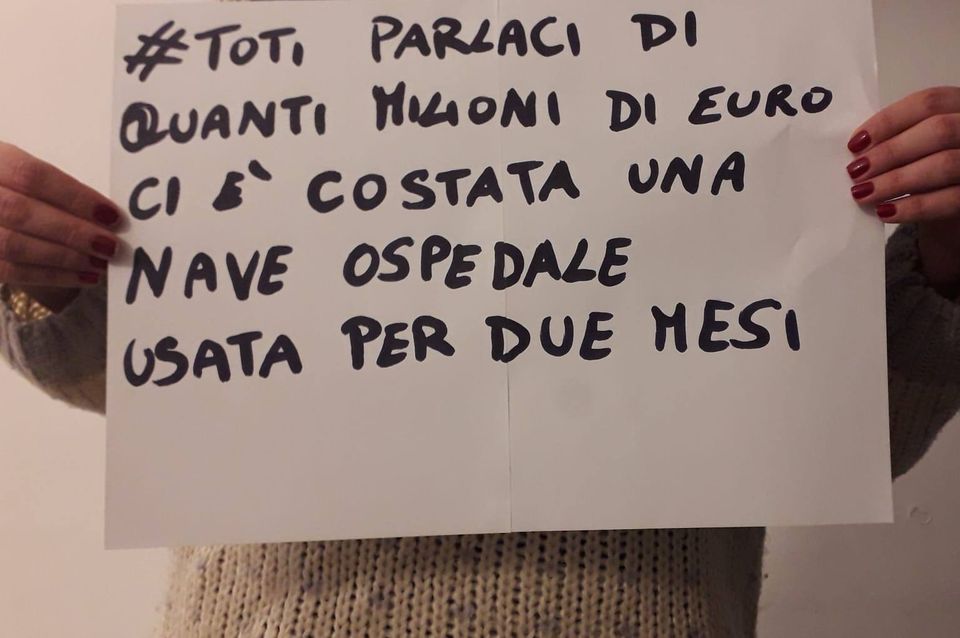 #TOTI PARLACI DI
QUANTI MILIONI DI EURO
CI È COSTATA UNA
NAVE OSPEDALE
USATA PER DUE MESI